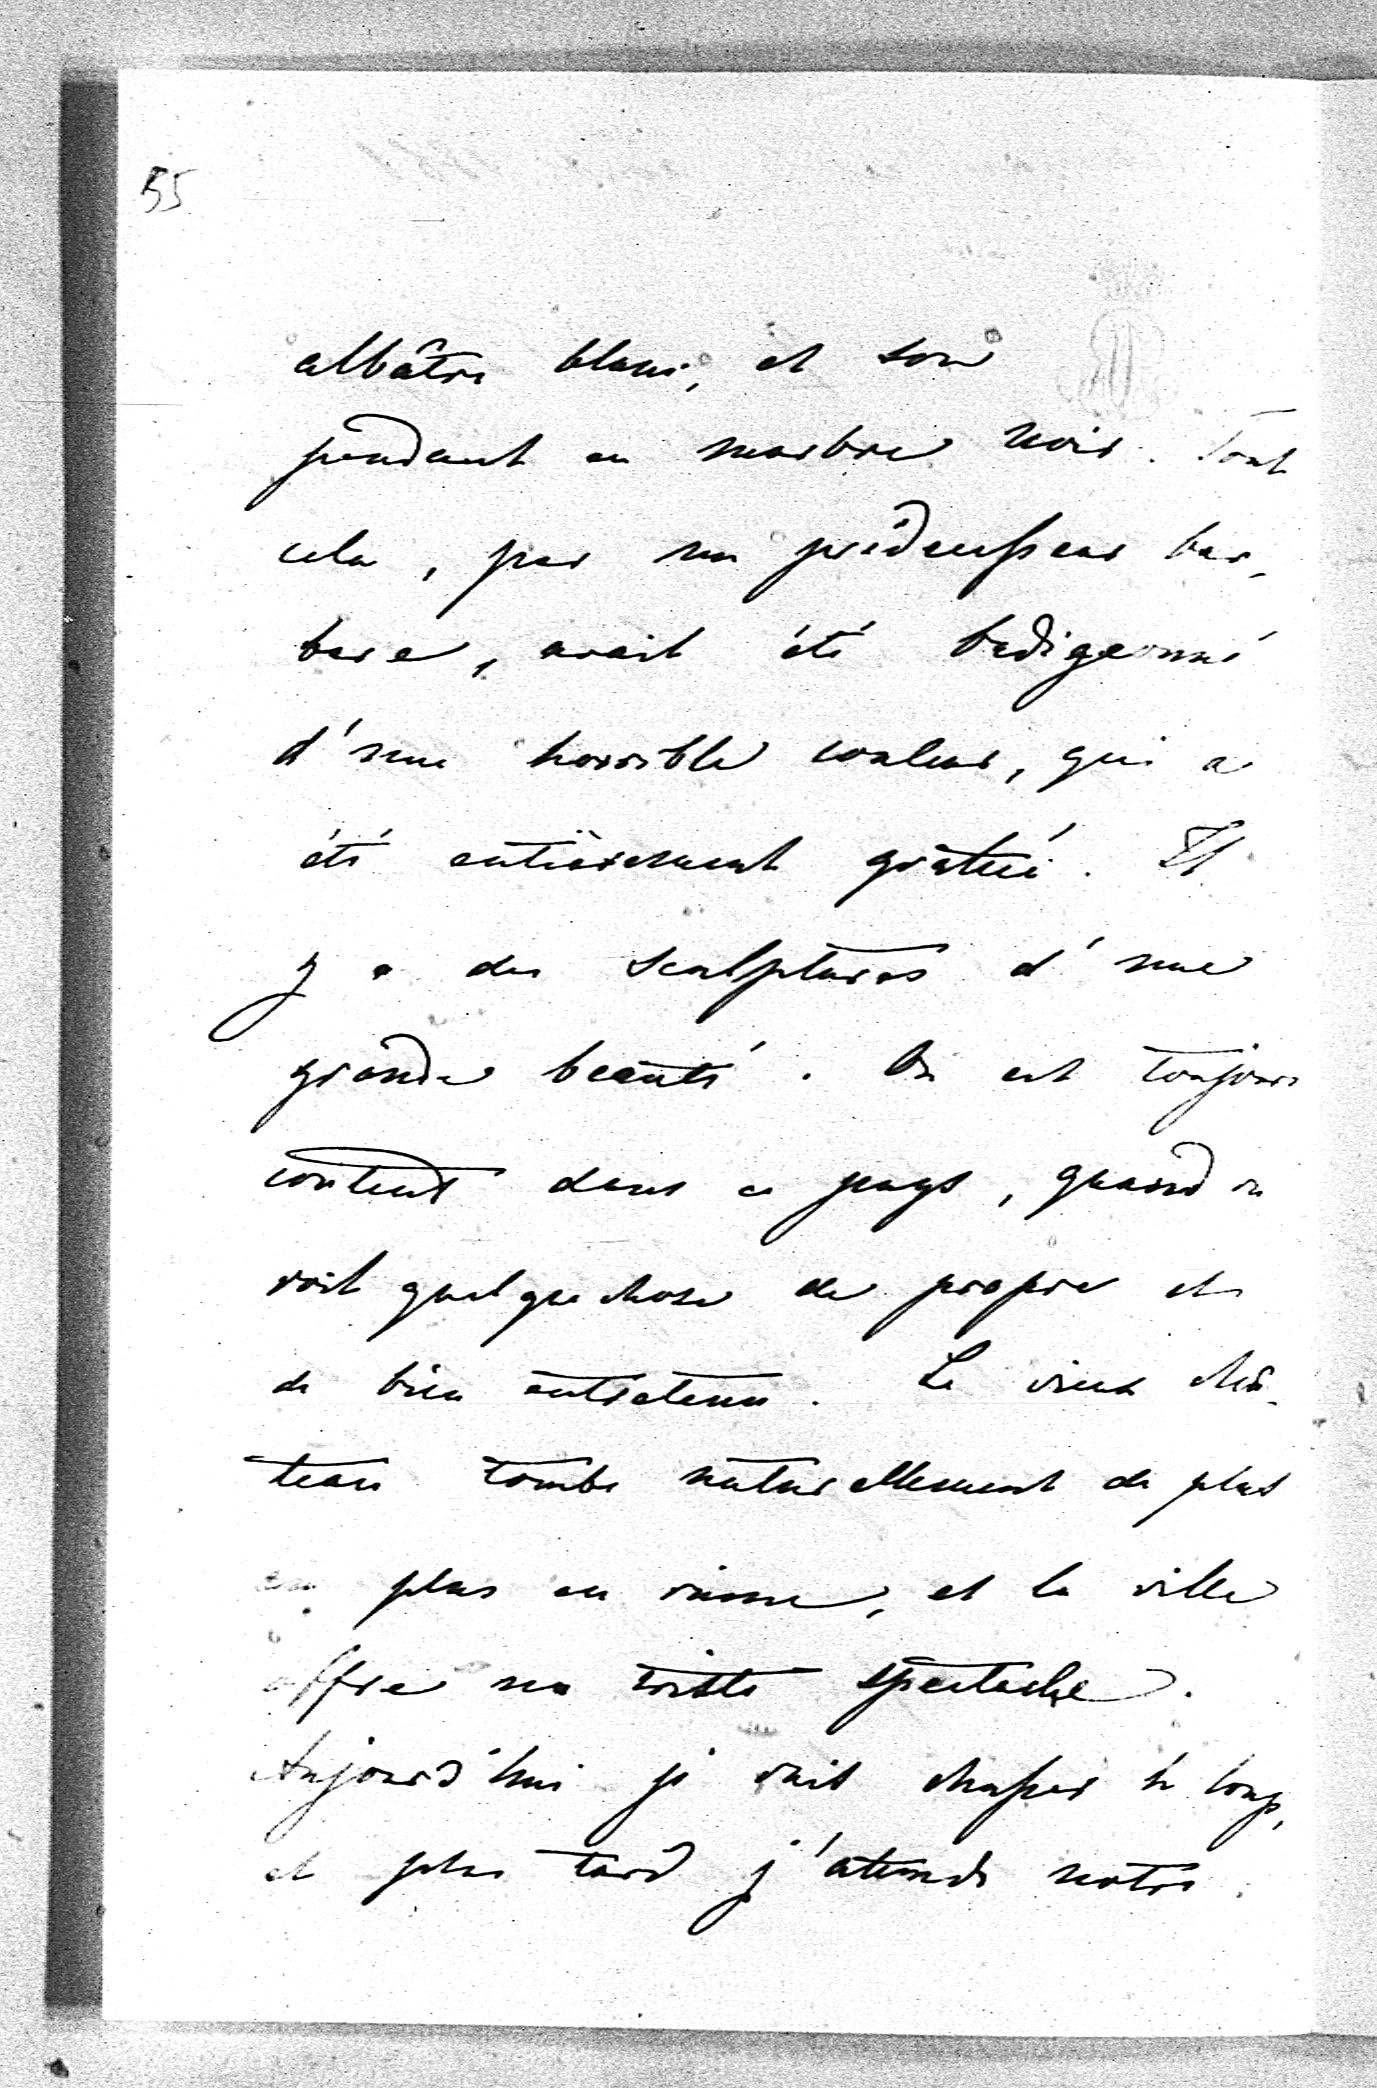 55
albâtre blanc, et son
pendant en marbre noir. Tout
cela, par un prédecesseur bar-
bare, avait été badigeonné
d'une horrible couleur, qui a
été entièrement gratée. Il
y a des sculptures d'une
grande beauté. On est toujours
content dans ce pays, quand on
voit quelque chose de propre et
de bien entretenu. Le vieux châ-
teau tombe naturellement de plus
en plus en ruine, et la ville
offre un triste spectacle.
Aujourd'hui je vais chasser le loup,
et plus tard j'attends notre